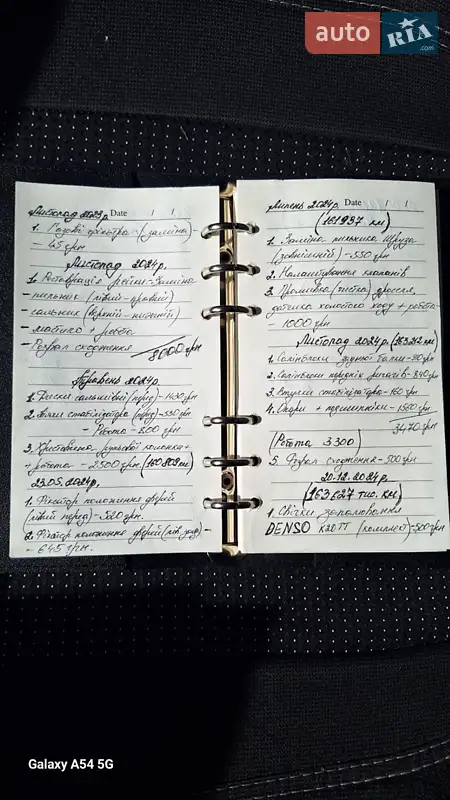 auto RIA .com
Листопад 2023р. Date / /
1. Газові фільтра (заміна)
- 45 грн
Листопад 2024р.
1. Реставрація рейки - Заміна
- пильник (лівий - правий)
- сальник (верхній - нижній)
- мастило + робота
- Розвал сходження
8000 грн
Травень 2024р.
1. Диски гальмівні (перед) - 1430 грн
2. Втулки стабілізатора (перед) - 350 грн
- Робота - 200 грн
3. Хрестовина рульової колонки +
+ робота - 2500 грн. (160 803 км)
23.05 2024р.
1. Фіксатор положення дверей
(лівий перед) - 520 грн.
2. Фіксатор положення дверей (лів. зад) -
- 645 грн.
Липень 2024р. Date / /
(161 937 км)
1. Заміна пильника Шруза
(зовнішній) - 550 грн
2. Налаштування клапанів
3. Промивка (чистка) дроселя,
датчика холостого ходу + робота -
- 1000 грн
Листопад 2024р. (163 212 км)
1. Сайлінблоки задньої балки - 910 грн
2. Сайлінблоки передніх ричагів - 840 грн
3. Втулки стабілізатора - 160 грн
4. Опори + підшипники - 1560 грн
3470 грн
Робота 3300
5. Розвал сходження - 500 грн
20.12.2024р.
(163 627 тис. км)
1. Свічки запалювання
DENSO K20TT (комплект) - 500 грн
Galaxy A54 5G